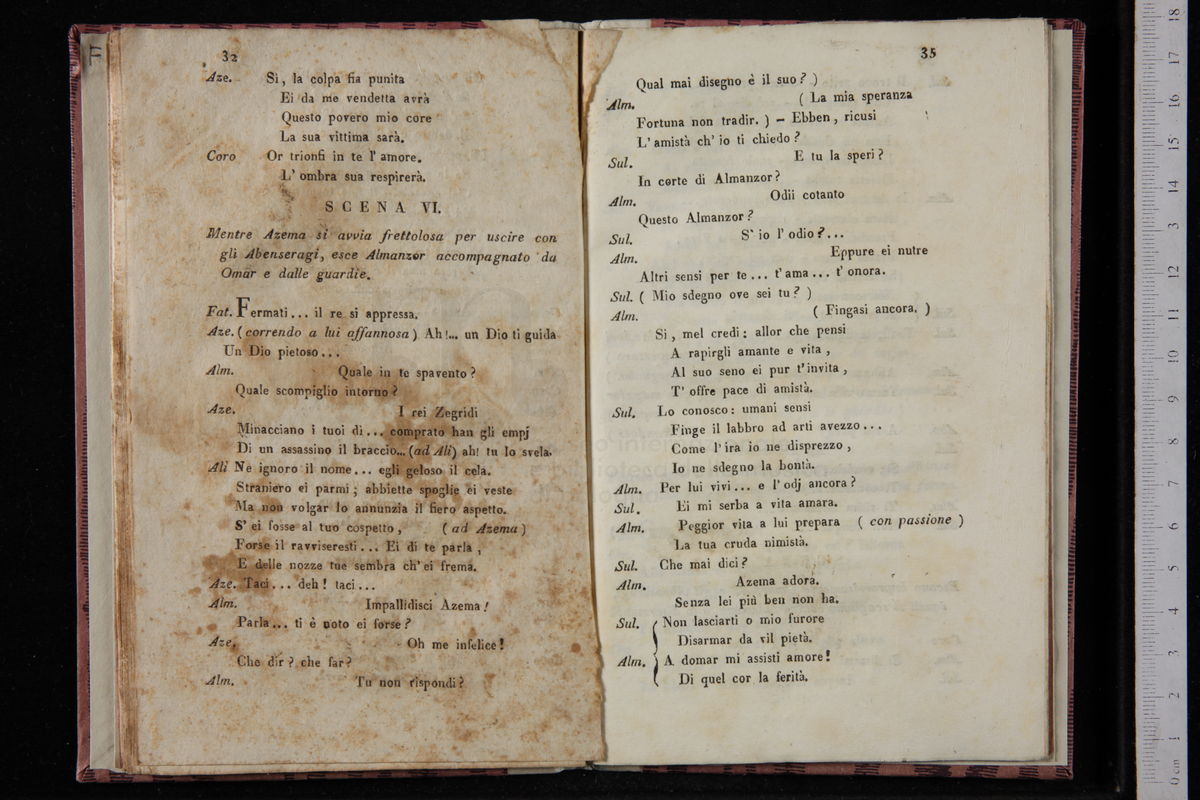 F
32
Aze. Sì, la colpa fia punita
Ei da me vendetta avrà
Questo povero mio core
La sua vittima sarà.
Coro Or trionfi in te l' amore.
L' ombra sua respirerà.
SCENA VI.
Mentre Azema si avvia frettolosa per uscire con
gli Abenseragi, esce Almanzor accompagnato da
Omar e dalle guardie.
Fat. Fermati... il re si appressa.
Aze. (correndo a lui affannosa) Ah!... un Dio ti guida
Un Dio pietoso...
Alm. Quale in te spavento?
Quale scompiglio intorno?
Aze. I rei Zegridi
Minacciano i tuoi dì... comprato han gli empj
Di un assassino il braccio... (ad Alì) ah! tu lo svela.
Alì Ne ignoro il nome... egli geloso il cela.
Straniero ei parmi; abbiette spoglie ei veste
Ma non volgar lo annunzia il fiero aspetto.
S' ei fosse al tuo cospetto, (ad Azema)
Forse il ravviseresti... Ei di te parla,
E delle nozze tue sembra ch' ei frema.
Aze. Taci... deh! taci...
Alm. Impallidisci Azema!
Parla... ti è noto ei forse?
Aze. Oh me infelice!
Che dir? che far?
Alm. Tu non rispondi?
35
Qual mai disegno è il suo?)
Alm. (La mia speranza
Fortuna non tradir.) - Ebben, ricusi
L' amistà ch' io ti chiedo?
Sul. E tu la speri?
In corte di Almanzor?
Alm. Odii cotanto
Questo Almanzor?
Sul. S' io l' odio?...
Alm. Eppure ei nutre
Altri sensi per te... t' ama... t' onora.
Sul. (Mio sdegno ove sei tu?)
Alm. (Fingasi ancora.)
Si, mel credi: allor che pensi
A rapirgli amante e vita,
Al suo seno ei pur t' invita,
T' offre pace di amistà.
Sul. Lo conosco: umani sensi
Finge il labbro ad arti avezzo...
Come l' ira io ne disprezzo,
Io ne sdegno la bontà.
Alm. Per lui vivi... e l' odj ancora?
Sul. Ei mi serba a vita amara.
Alm. Peggior vita a lui prepara (con passione)
La tua cruda nimistà.
Sul. Che mai dici?
Alm. Azema adora.
Senza lei più ben non ha.
Sul. Non lasciarti o mio furore
Disarmar da vil pietà.
Alm. A domar mi assisti amore!
Di quel cor la ferità.
0 cm 1 2 3 4 5 6 7 8 9 10 11 12 13 14 15 16 17 18